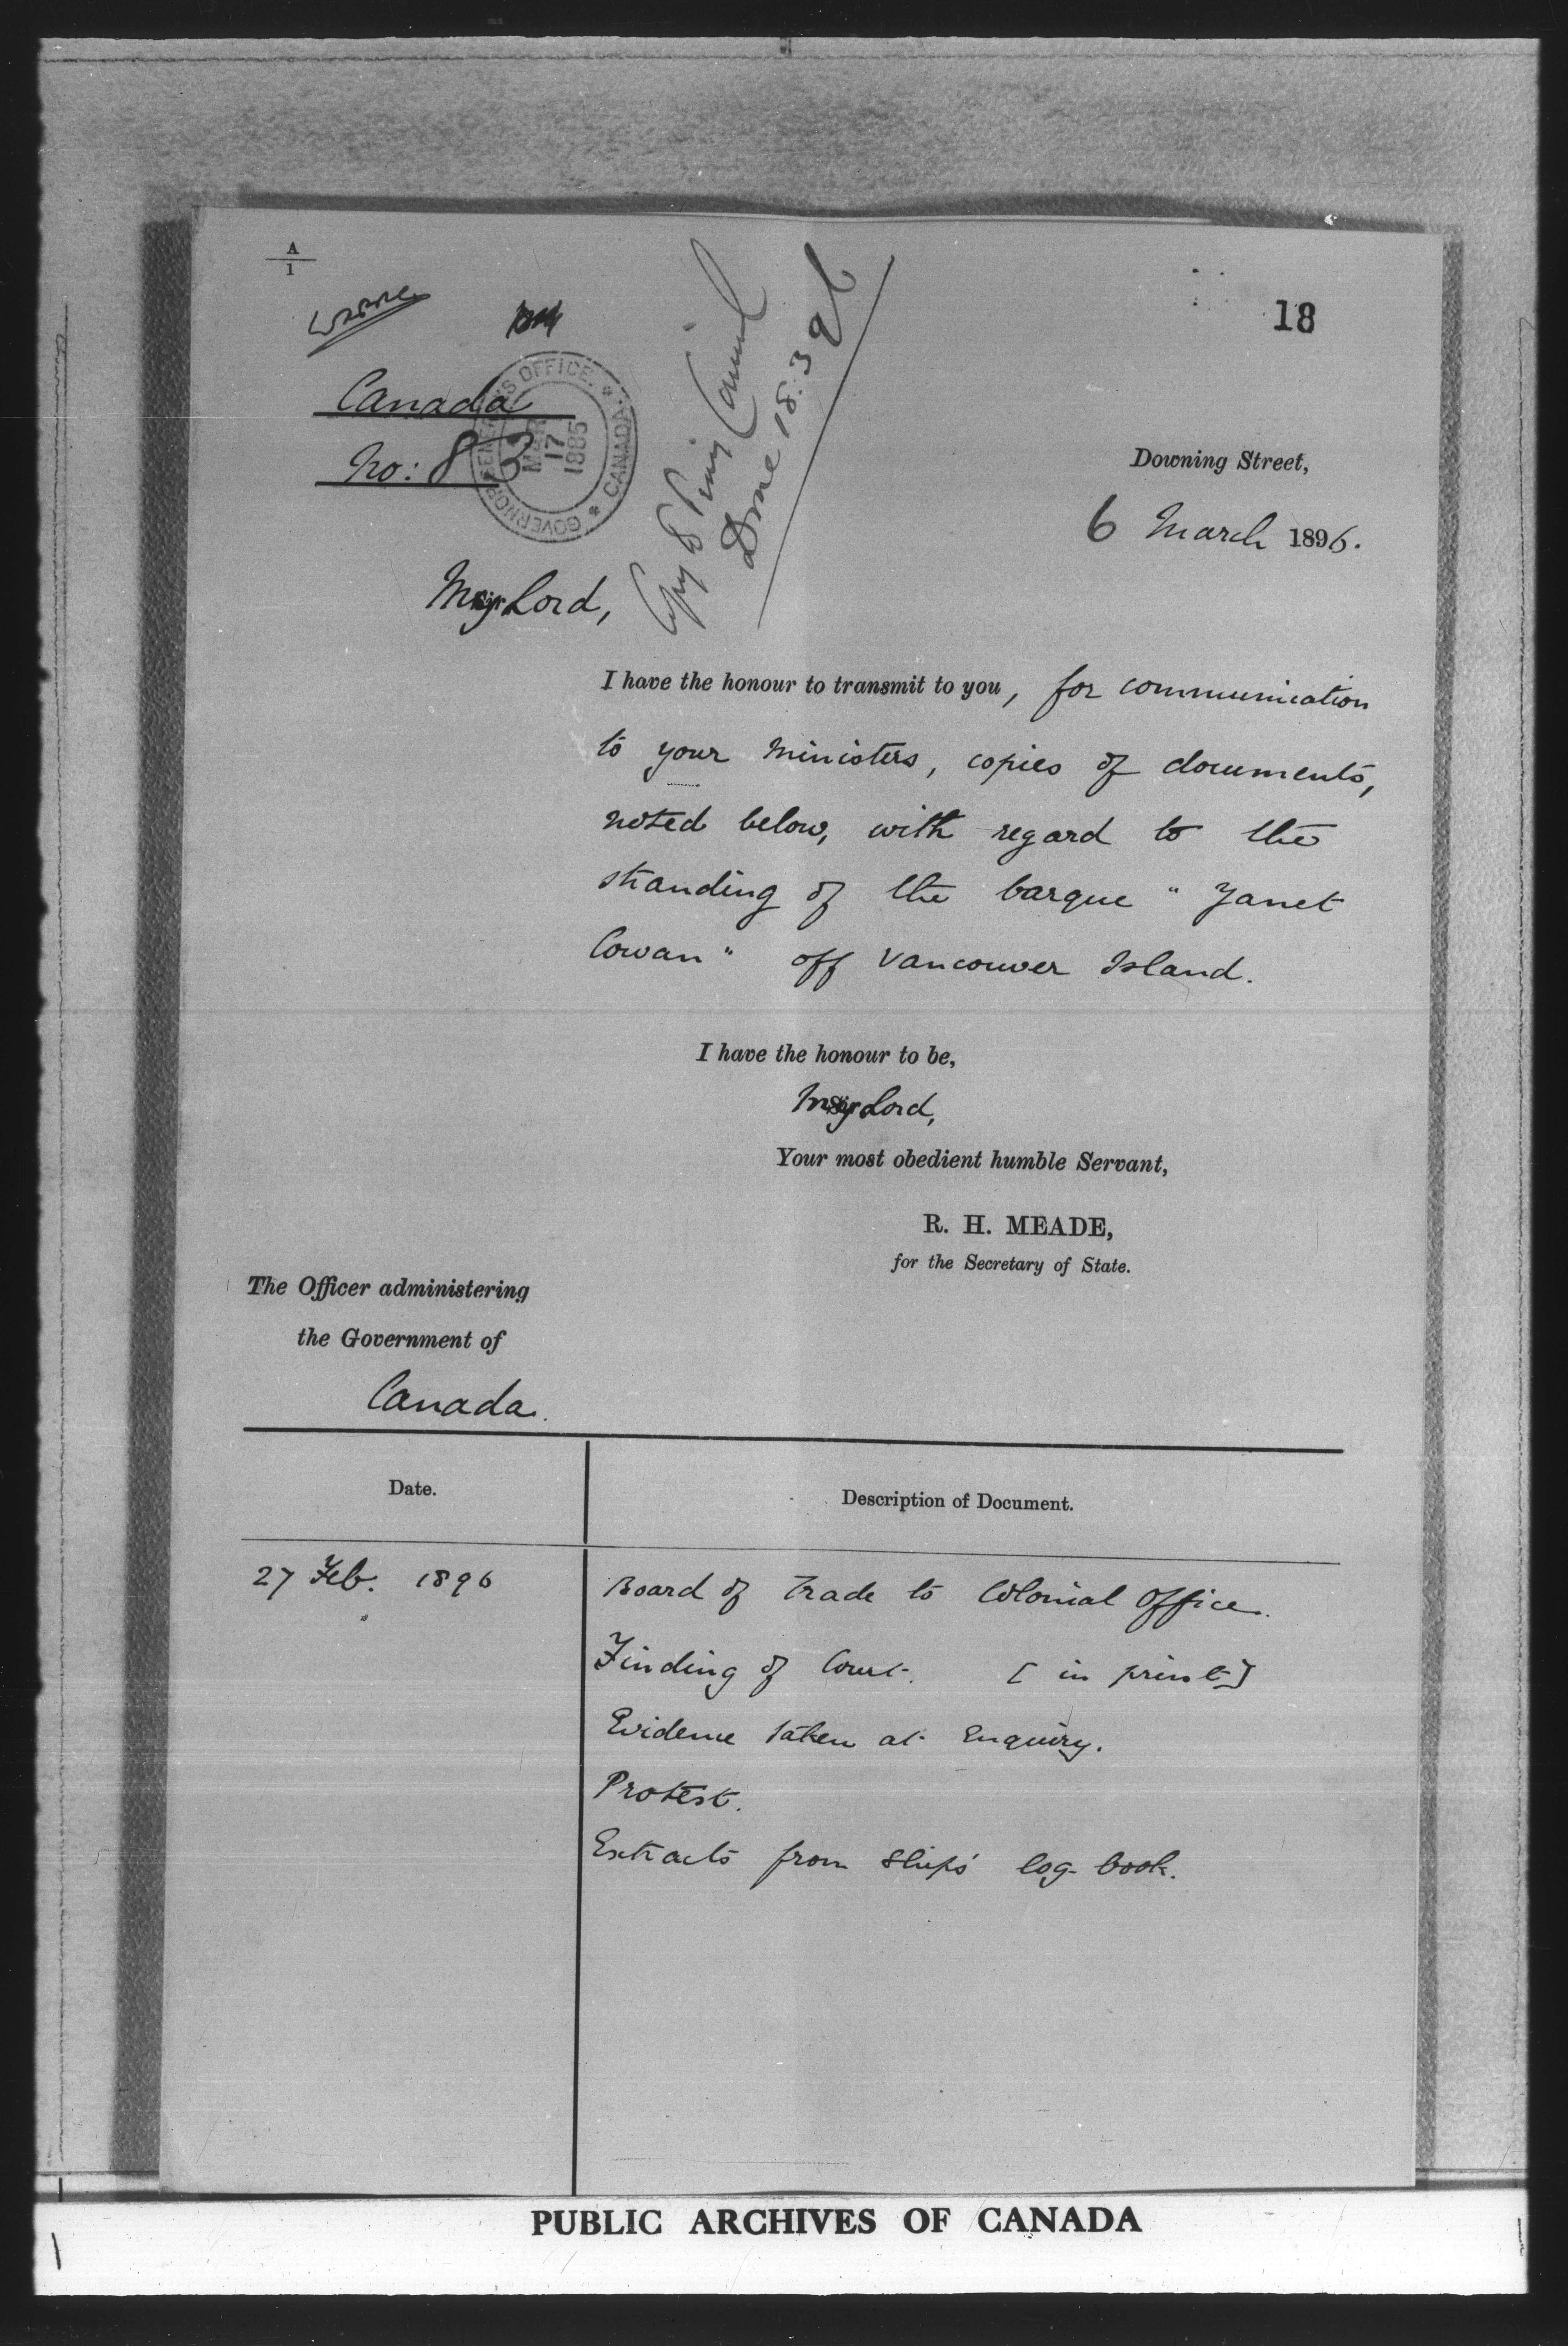 A
1
18
Canada
No: 83
GOVERNOR GENERAL'S OFFICE. * CANADA *
MAR
17
1885
Copy to Privy Council
Done 18.3.96
Downing Street,
6 March 1896.
My Lord,
I have the honour to transmit to you, for communication
to your Ministers, copies of documents,
noted below, with regard to the
stranding of the barque "Janet
Cowan" off Vancouver Island.
I have the honour to be,
My Lord,
Your most obedient humble Servant,
R. H. MEADE,
for the Secretary of State.
The Officer administering
the Government of
Canada.
Date.
Description of Document.
27 Feb. 1896
Board of Trade to Colonial Office.
Finding of Court. [in print]
Evidence taken at Enquiry.
Protest.
Extracts from Ship's log-book.
PUBLIC ARCHIVES OF CANADA